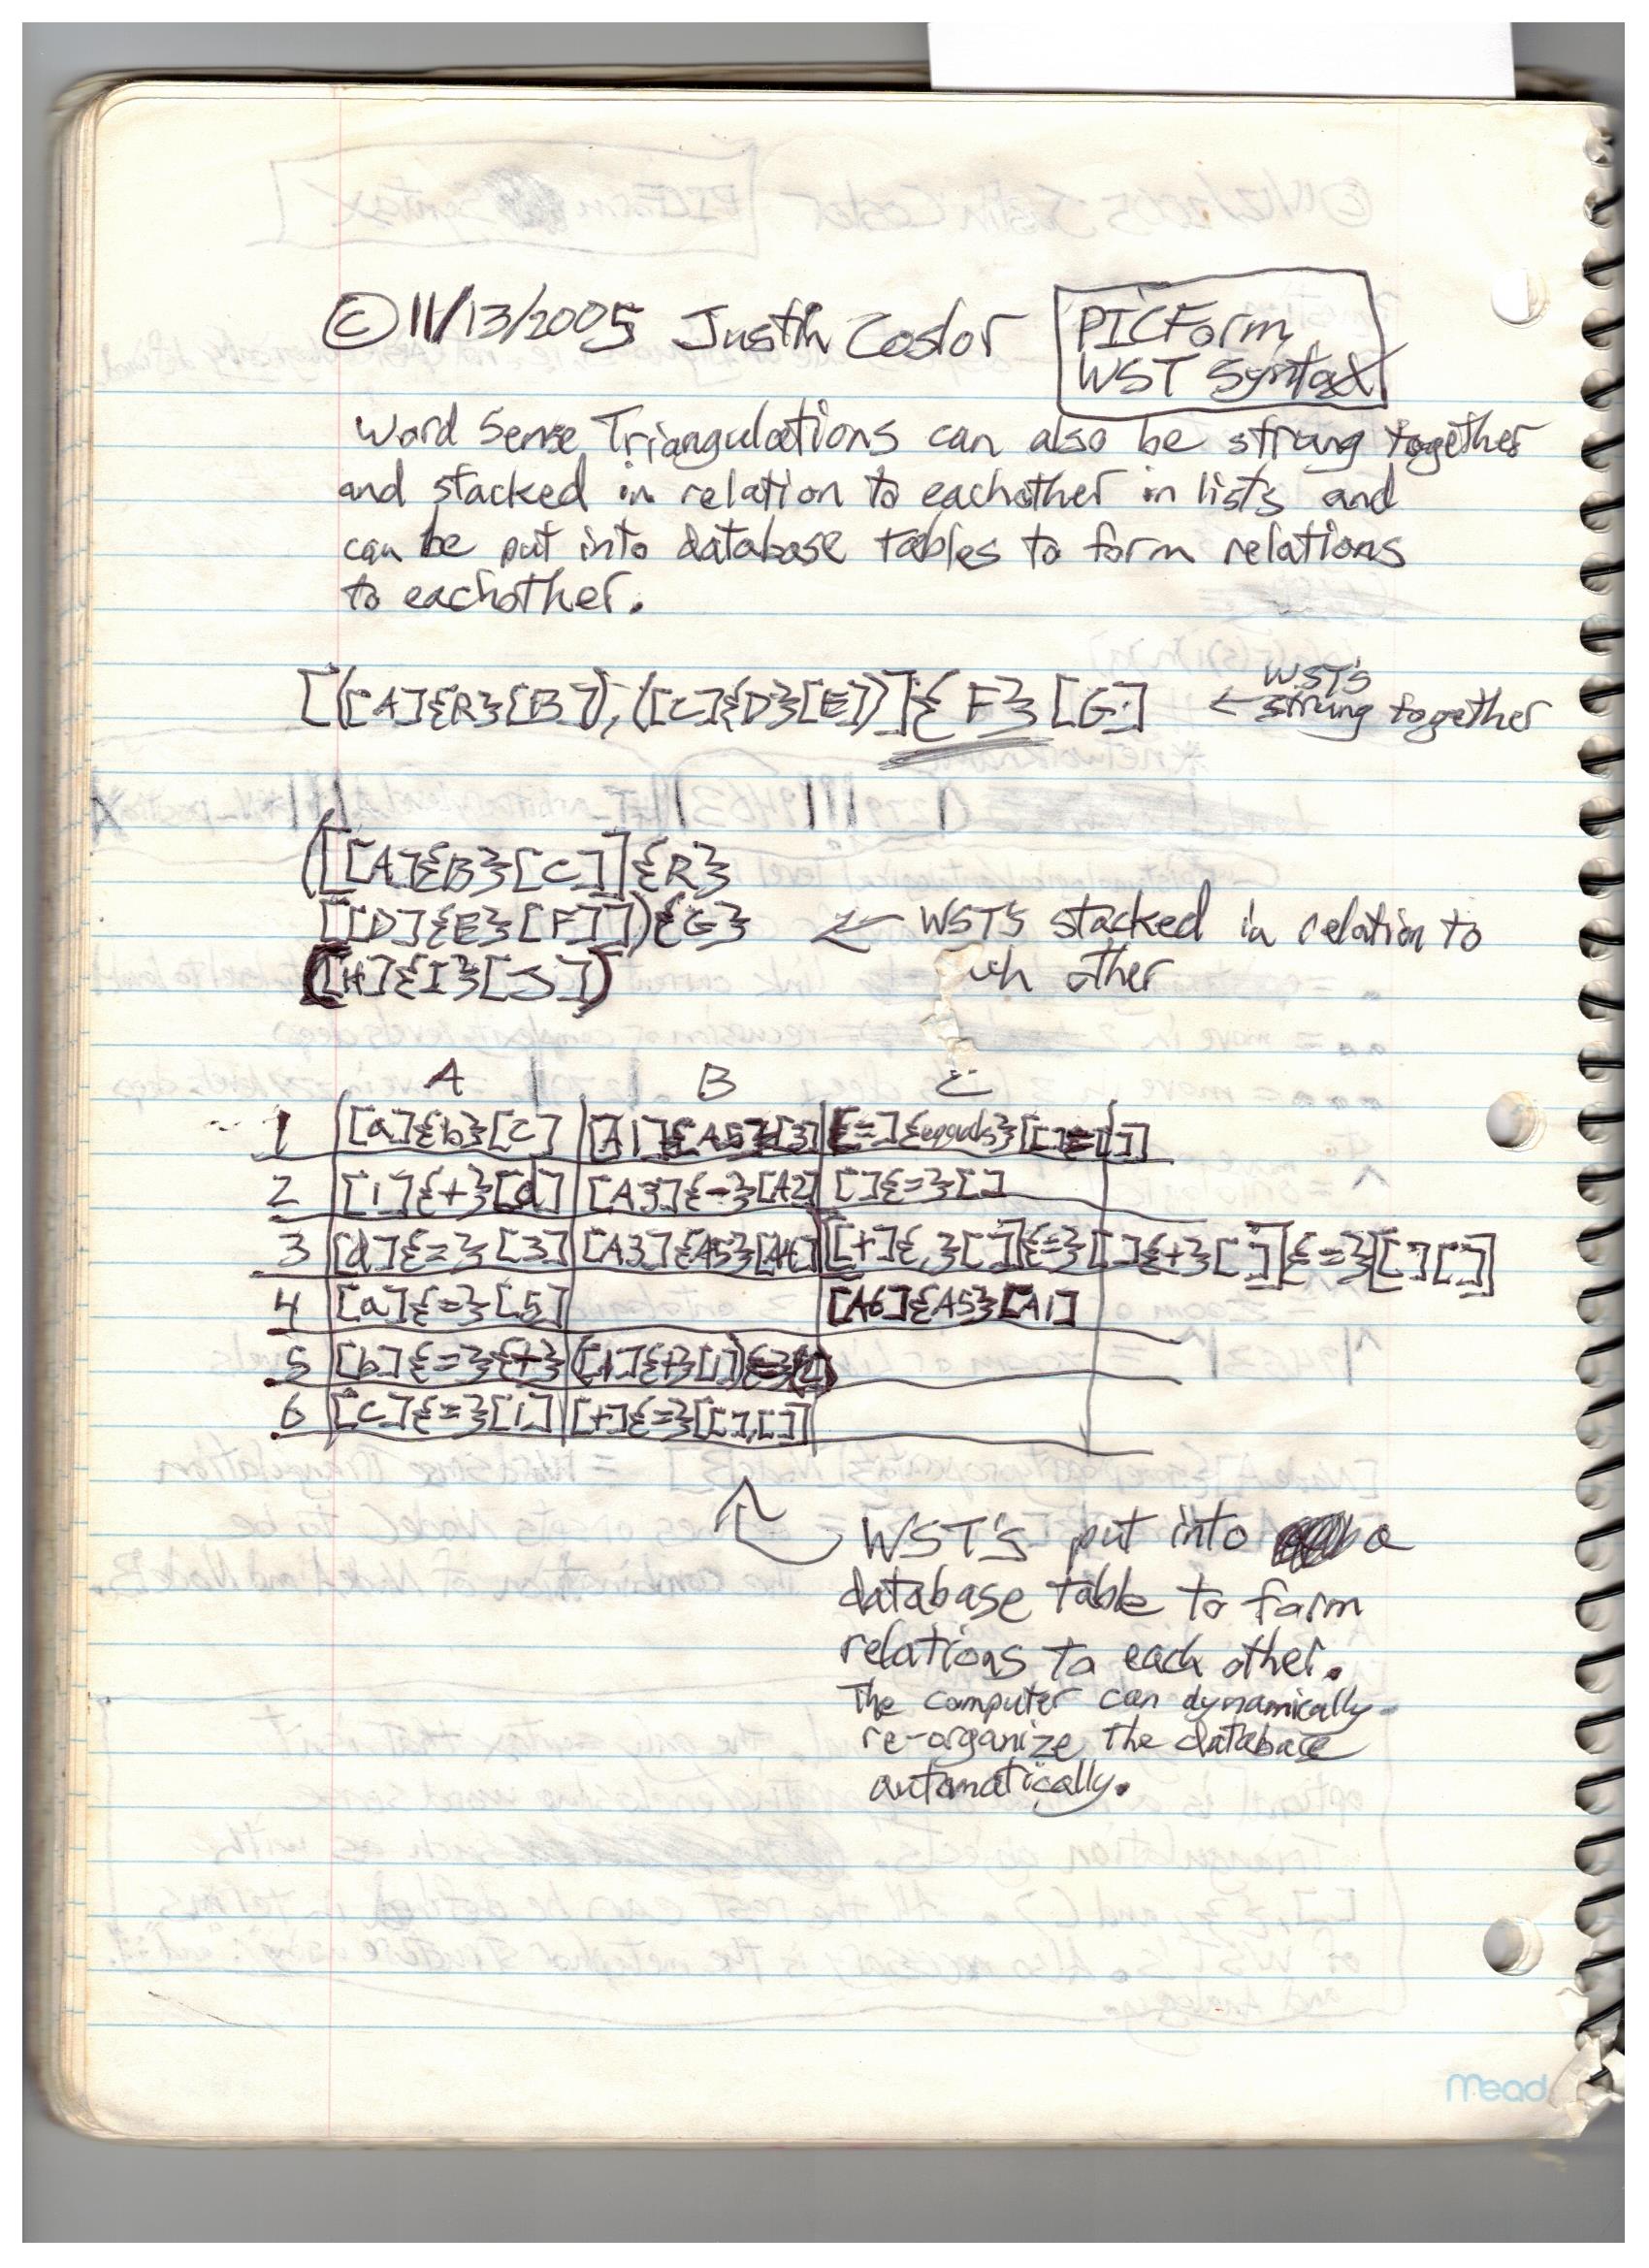 © 11/13/2005 Justin Coslor
PICForm
WST Syntax
Word Sense Triangulations can also be strung together
and stacked in relation to eachother in lists and
can be put into database tables to form relations
to eachother.
[([A]{R}[B]),([C]{D}[E])]{F}[G]
← WST's
strung together
([[A]{B}[C]]{R}
[[D]{E}[F]]){G}
([H]{I}[J])
← WST's stacked in relation to
other
A B C
1 [a]{b}[c] [A1]{A5}[3] [=]{equals}
2 [1]{+}[d] [A3]{-}[A2] []{=}[]
3 [d]{=}[3] [A3]{A5}[A4] [+]{,}[]{=}[]{+}[]]{=}[[][]]
4 [a]{=}[5] [A6]{A5}[A1]
5 [b]{=}{+} ([1]{+}[1])
6 [c]{=}[1] [+]{=}[[],[]]
WST's put into a
database table to form
relations to each other.
The computer can dynamically
re-organize the database
automatically.
Mead